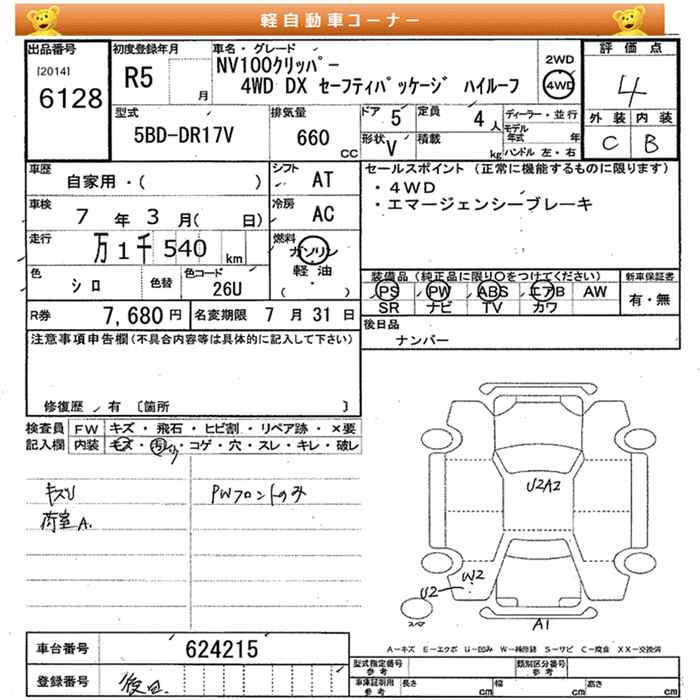 軽自動車コーナー
出品番号 初度登録年月 車名・グレード 2WD 評価点
[2014] 6128 R5 月 NV100クリッパー 4WD 4
4WD DX セーフティパッケージ ハイルーフ
外装 内装
C B
型式 排気量 ドア 5 定員 4人 ディーラー・並行
5BD-DR17V 660 CC 形状 V 積載 kg モデル年式 年
ハンドル 左・右
車歴 自家用・( ) シフト AT
車検 7年 3月( 日) 冷房 AC
走行 万1千540 km 燃料 ガソリン
軽油
( ・ )
色 シロ 色替 色コード 26U
R券 7,680円 名変期限 7月31日
セールスポイント (正常に機能するものに限ります)
・4WD
・エマージェンシーブレーキ
装備品(純正品に限り○をつけてください) 新車保証書
PS PW ABS エアB AW 有・無
SR ナビ TV カワ
後日品
ナンバー
注意事項申告欄(不具合内容等は具体的に記入して下さい)
修復歴 有 〔箇所 〕
検査員 FW キズ・飛石・ヒビ割・リペア跡・×要
記入欄 内装 キズ・汚レ・コゲ・穴・スレ・キレ・破レ
キズリ
荷室A.
PWフロントのみ
U2A2
W2
U2
スペア
A1
A-キズ E-エクボ U-凹み W-補修跡 S-サビ C-腐食 XX-交換済
車台番号 624215
登録番号 後日
型式指定番号 参考 類別区分番号 参考
車庫証明用 参考 長さ cm 幅 cm 高さ cm